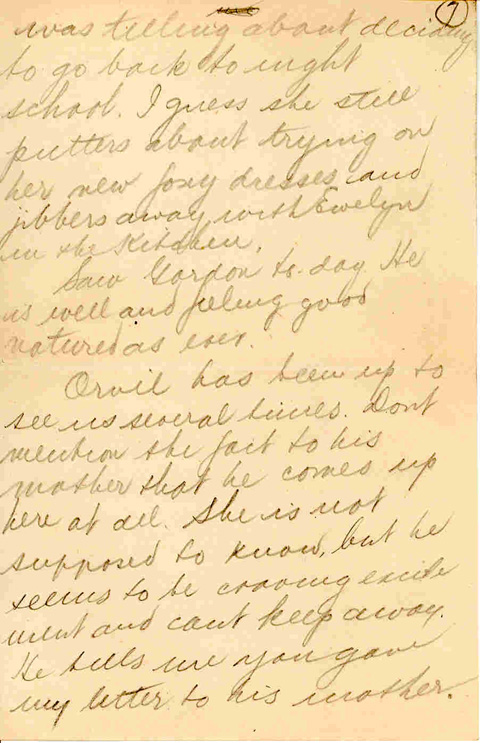 7
was telling about deciding
to go back to night
school. I guess she still
putters about trying on
her new foxy dresses and
jibbers away with Evelyn
in the kitchen.
Saw Gordon to-day He
is well and feeling good
natured as ever.
Orvil has been up to
see us several times. Dont
mention the fact to his
mother that he comes up
here at all. She is not
supposed to know, but he
seems to be craving excite
ment and cant keep away.
He tells me you gave
my letter to his mother.